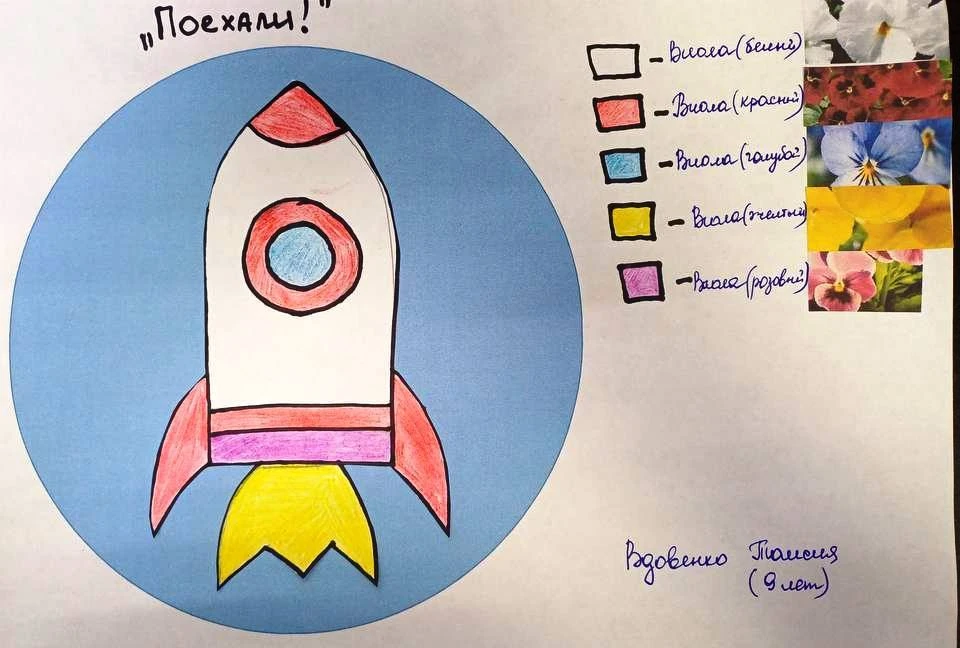 „Поехали!"
Виола (белый)
Виола (красный)
Виола (голубой)
Виола (желтый)
Виола (розовый)
Вдовенко Таисия
(9 лет)